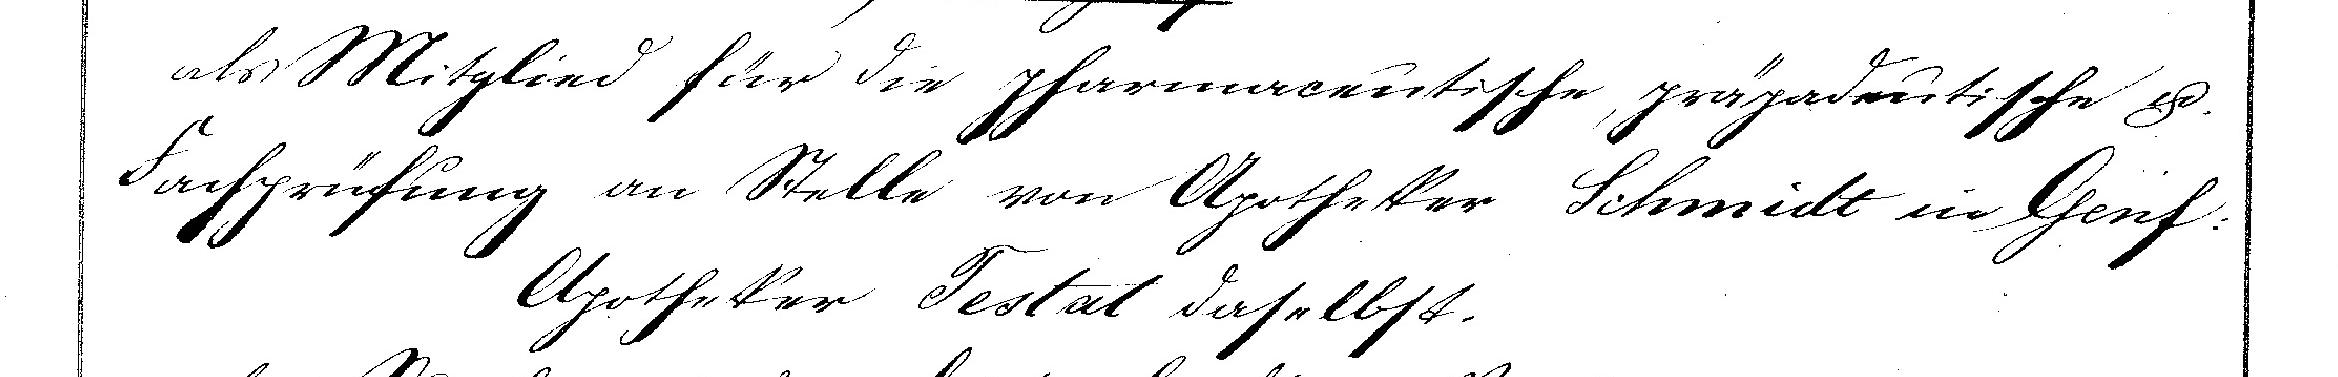 als Mitglied für die pharmaceutische, präpadeutische &.
Fachprüfung an Stelle von Apotheker Schmidt in Genf:
Apotheker Testat daselbst.